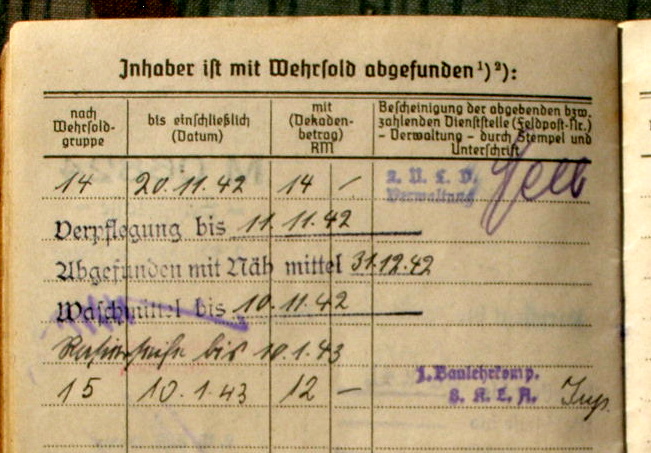 Inhaber ist mit Wehrsold abgefunden¹)²):
nach Wehrsold-gruppe
bis einschließlich (Datum)
mit (Dekaden-betrag) RM
Bescheinigung der abgebenden bzw. zahlenden Dienststelle (Feldpost-Nr.) - Verwaltung - durch Stempel und Unterschrift
14 20.11.42 14 –
Verwaltung
Verpflegung bis 11.11.42
Abgefunden mit Näh mittel 31.12.42
Waschmittel bis 10.11.42
Rasierseife bis 10.1.43
15 10.1.43 12 –
1. Baulehrkomp.